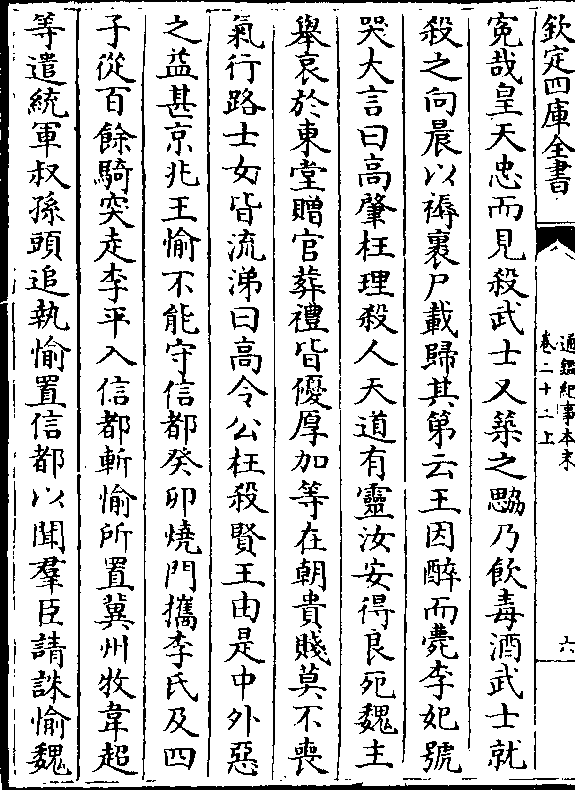 欽定四庫全書
通鑑紀事本末
卷二十二上
六
寃哉皇天忠而見殺武士又築之勰乃飲毒酒武士就
殺之向晨以褥裹尸載歸其第云王因醉而薨李妃號
哭大言曰高肇枉理殺人天道有靈汝安得良死魏主
舉哀於東堂贈官葬禮皆優厚加等在朝貴賤莫不喪
氣行路士女皆流涕曰高令公枉殺賢王由是中外惡
之益甚京兆王愉不能守信都癸卯燒門攜李氏及四
子從百餘騎突走李平入信都斬愉所置冀州牧韋超
等遣統軍叔孫頭追執愉置信都以聞羣臣請誅愉魏